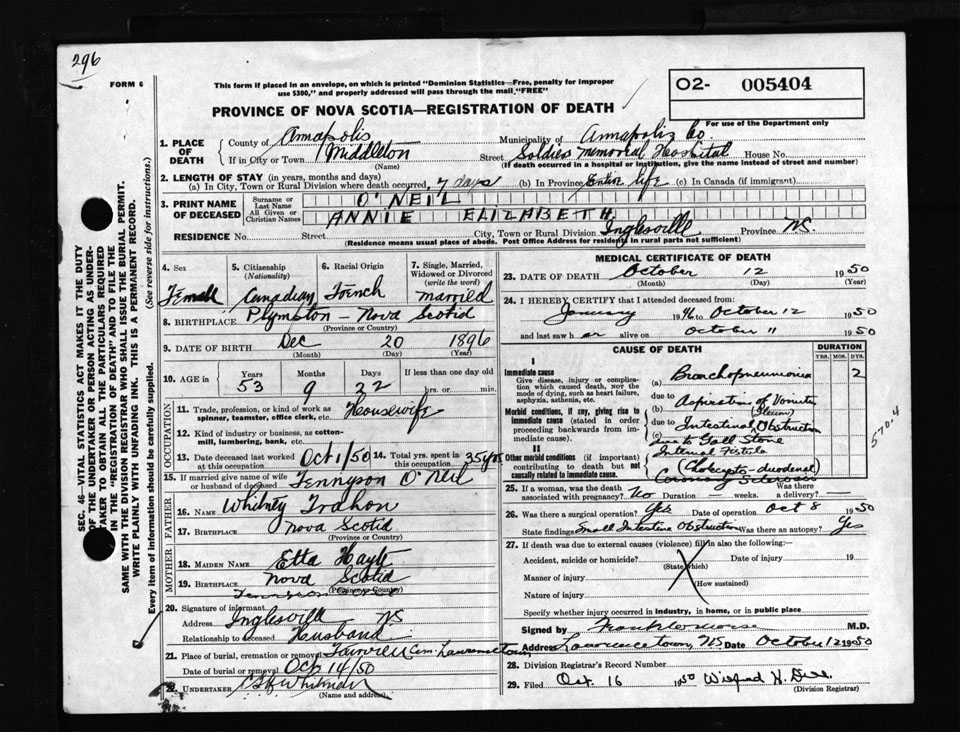 296
FORM 6
This form if placed in an envelope, on which is printed "Dominion Statistics—Free, penalty for improper
use $300," and properly addressed will pass through the mail "FREE"
O2- 005404
For use of the Department only
PROVINCE OF NOVA SCOTIA—REGISTRATION OF DEATH
1. PLACE OF DEATH
County of Annapolis Municipality of Annapolis Co
If in City or Town Middleton Street Soldiers Memorial Hospital House No.
(Name) (If death occurred in a hospital or institution, give the name instead of street and number)
2. LENGTH OF STAY (in years, months and days)
(a) In City, Town or Rural Division where death occurred, 7 days (b) In Province Entire life (c) In Canada (if immigrant)
3. PRINT NAME OF DECEASED
Surname or Last Name O'NEIL
All Given or Christian Names ANNIE ELIZABETH
RESIDENCE No. Street City, Town or Rural Division Inglesville Province NS.
(Residence means usual place of abode. Post Office Address for residents in rural parts not sufficient)
4. Sex 5. Citizenship (Nationality) 6. Racial Origin 7. Single, Married, Widowed or Divorced (write the word)
Female Canadian French married
8. BIRTHPLACE Plympton - Nova Scotia
(Province or Country)
9. DATE OF BIRTH Dec 20 1896
(Month) (Day) (Year)
10. AGE in Years Months Days If less than one day old
53 9 22 hrs. or min.
OCCUPATION
11. Trade, profession, or kind of work as spinner, teamster, office clerk, etc. Housewife
12. Kind of industry or business, as cotton-mill, lumbering, bank, etc.
13. Date deceased last worked at this occupation Oct 1/50 14. Total yrs. spent in this occupation 35 yrs
15. If married give name of wife or husband of deceased Tennyson O'Neil
FATHER
16. NAME Whitney Trahon
17. BIRTHPLACE Nova Scotia
(Province or Country)
MOTHER
18. MAIDEN NAME Etta
19. BIRTHPLACE Nova Scotia
(Province or Country)
20. Signature of informant Tennyson O'Neil
Address Inglesville NS
Relationship to deceased Husband
21. Place of burial, cremation or removal Fairview Cem. Lawrencetown
Date of burial or removal Oct 14/50
22. UNDERTAKER Whitman
(Name and address)
MEDICAL CERTIFICATE OF DEATH
23. DATE OF DEATH October 12 1950
(Month) (Day) (Year)
24. I HEREBY CERTIFY that I attended deceased from:
January 1946 to October 12 1950
and last saw h er alive on October 11 1950
CAUSE OF DEATH DURATION
YRS. MOS. DYS.
I
Immediate cause
Give disease, injury or complication which caused death, NOT the mode of dying, such as heart failure, asphyxia, asthenia, etc.
(a) Bronchopneumonia 2
due to Aspiration of Vomitus
Morbid conditions, if any, giving rise to immediate cause (stated in order proceeding backwards from immediate cause).
(b) (Ileum)
due to Intestinal Obstruction
(c) due to Gall Stone
Internal Fistula
II
Other morbid conditions (if important) contributing to death but not causally related to immediate cause.
(Cholecysto-duodenal)
Coronary Sclerosis
5704
25. If a woman, was the death associated with pregnancy? No Duration — weeks. Was there a delivery? —
26. Was there a surgical operation? Yes Date of operation Oct 8 1950
State findings Small Intestine Obstruction Was there an autopsy? Yes
27. If death was due to external causes (violence) fill in also the following:—
Accident, suicide or homicide? Date of injury 19
(State which)
Manner of injury
(How sustained)
Nature of injury
Specify whether injury occurred in industry, in home, or in public place
Signed by M.D.
Address Lawrencetown, NS Date October 12 1950
28. Division Registrar's Record Number
29. Filed Oct. 16 1950 Wilfred H.
(Division Registrar)
SEC. 46—VITAL STATISTICS ACT MAKES IT THE DUTY
OF THE UNDERTAKER OR PERSON ACTING AS UNDER-
TAKER TO OBTAIN ALL THE PARTICULARS REQUIRED
IN THE "REGISTRATION OF DEATH" AND TO FILE THE
SAME WITH THE DIVISION REGISTRAR WHO SHALL ISSUE THE BURIAL PERMIT.
WRITE PLAINLY WITH UNFADING INK. THIS IS A PERMANENT RECORD.
Every item of information should be carefully supplied. (See reverse side for instructions.)